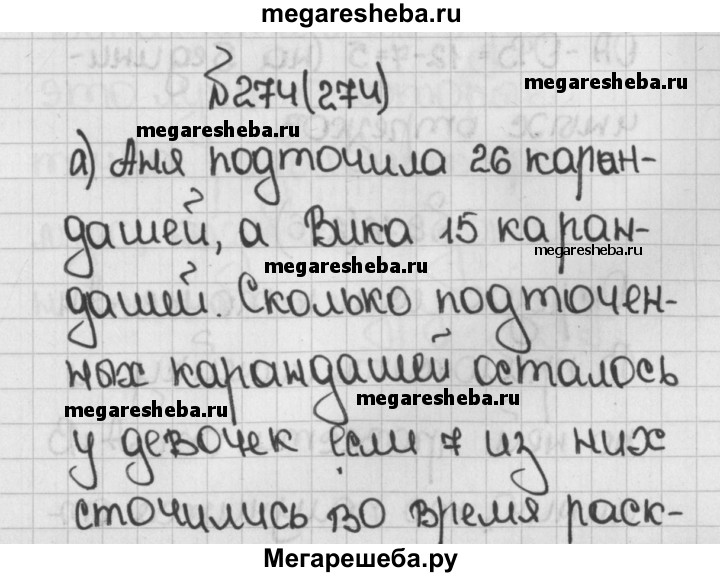 megaresheba.ru
№274(274)
megaresheba.ru
megaresheba.ru
а) Аня подточила 26 каран-
дашей, а Вика 15 каран-
megaresheba.ru
megaresheba.ru
дашей. Сколько подточен-
ных карандашей осталось
megaresheba.ru
megaresheba.ru
у девочек если 7 из них
сточились во время раск-
Мегарешеба.ру